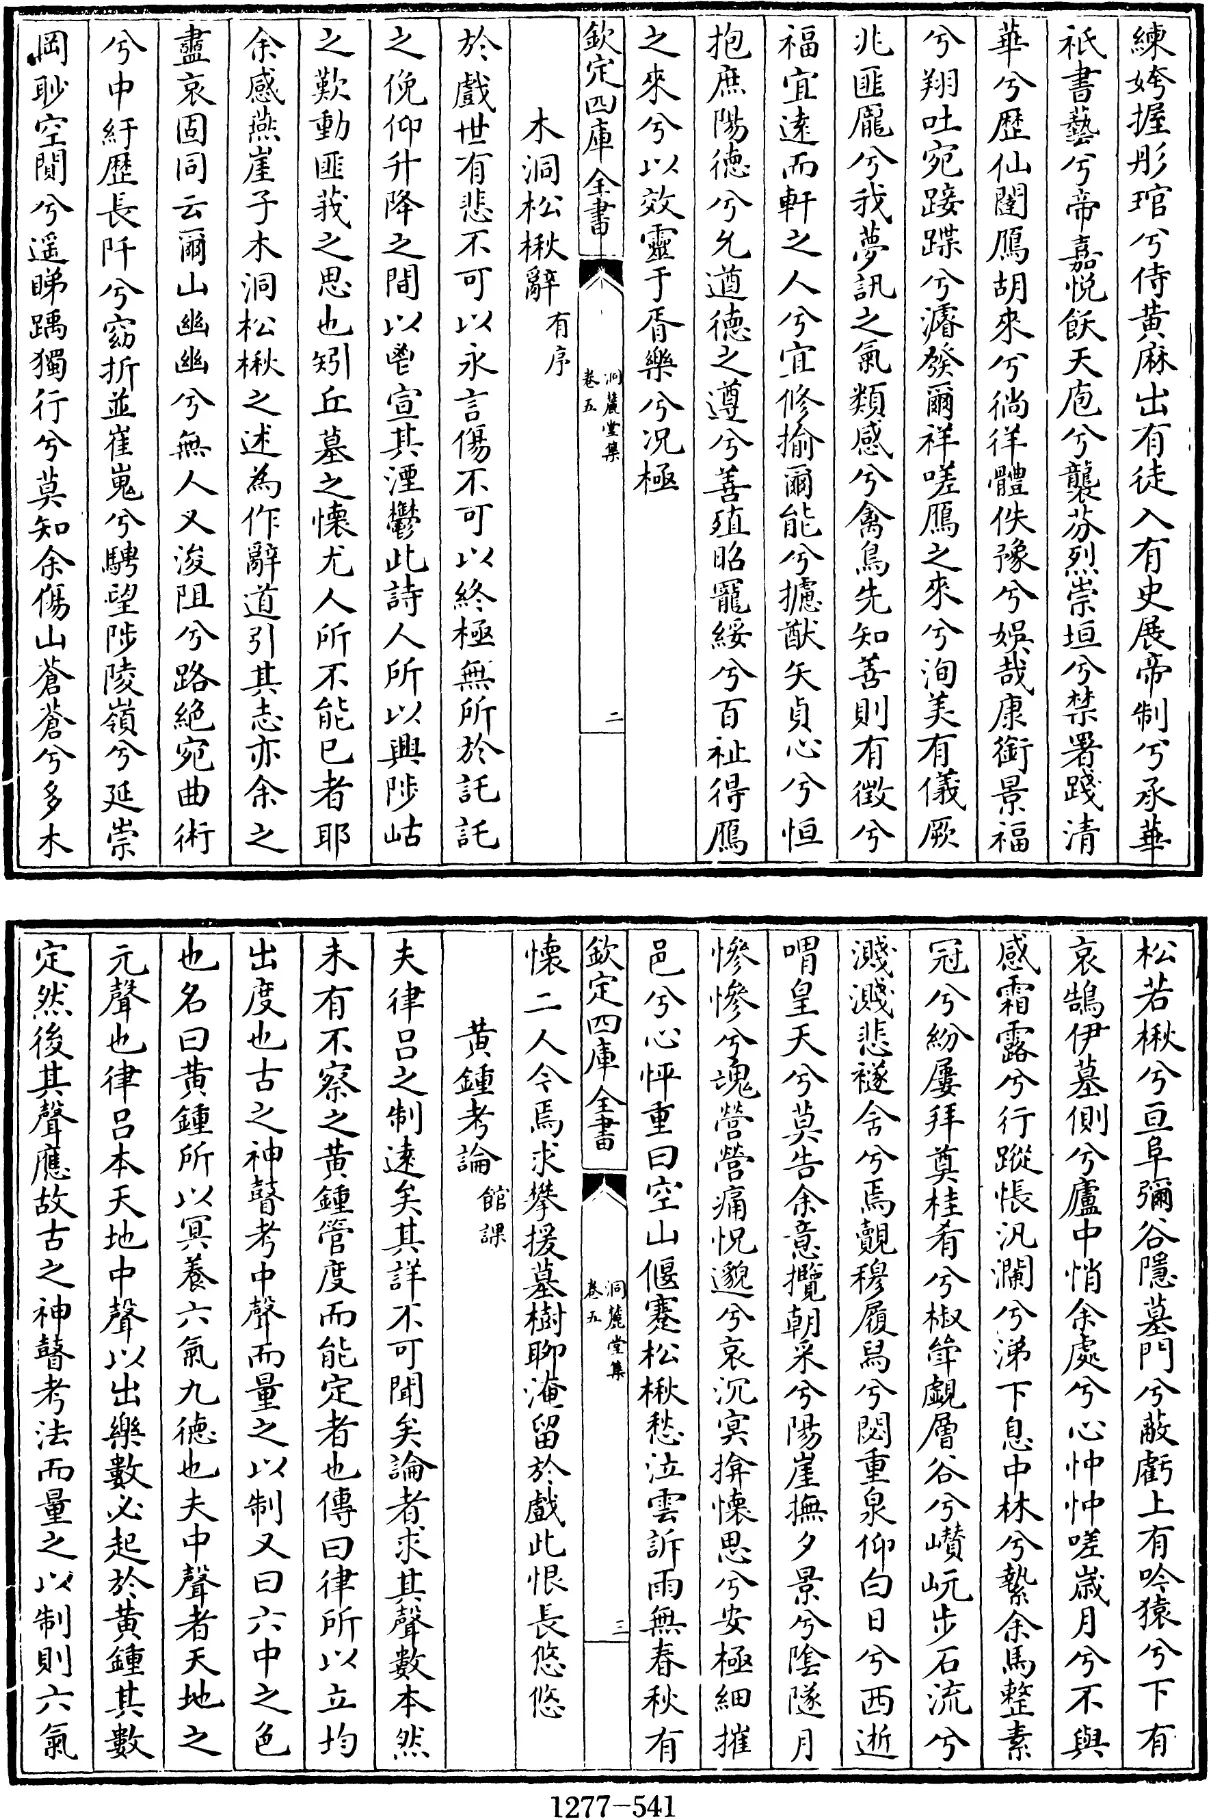 練姱握彤琯兮侍黃麻出有徒入有史展帝制兮承華
祇書藝兮帝嘉悅飫天庖兮襲芬烈崇垣兮禁署踐清
華兮歷仙閨鴈胡來兮徜徉體佚豫兮娛哉康銜景福
兮翔吐宛踥蹀兮濬發爾祥嗟鴈之來兮洵美有儀厥
兆匪龐兮我夢訊之氣類感兮禽鳥先知善則有徵兮
福宜遠而軒之人兮宜修揄爾能兮攄猷矢貞心兮恒
抱庶陽德兮允遒德之遵兮善殖昭寵綏兮百祉得鴈
之來兮以效靈于胥樂兮况極
欽定四庫全書
洞麓堂集
卷五
二
木洞松楸辭有序
於戲世有悲不可以永言傷不可以終極無所於託託
之俛仰升降之間以鬯宣其湮鬱此詩人所以興陟岵
之歎動匪莪之思也矧丘墓之懷尤人所不能已者耶
余感燕崖子木洞松楸之述為作辭道引其志亦余之
盡哀固同云爾山幽幽兮無人又浚阻兮路絕宛曲術
兮中紆歷長阡兮窈折並崔嵬兮騁望陟陵嶺兮延崇
岡眇空閴兮遥睇踽獨行兮莫知余傷山蒼蒼兮多木
松若楸兮亘阜彌谷隱墓門兮蔽虧上有吟猿兮下有
哀鵠伊墓側兮廬中悄余處兮心忡忡嗟歲月兮不與
感霜露兮行蹤悵汎瀾兮涕下息中林兮縶余馬整素
冠兮紛屢拜奠桂肴兮椒斝覷層谷兮巑岏步石流兮
濺濺悲襚舍兮焉覿穆履舄兮閟重泉仰白日兮西逝
喟皇天兮莫告余意攬朝采兮陽崖撫夕景兮陰隧月
慘慘兮魂營營痛怳邈兮哀沉冥揜懷思兮安極細摧
邑兮心怦重曰空山偃蹇松楸愁泣雲訴雨無春秋有
欽定四庫全書
洞麓堂集
卷五
三
懷二人今焉求攀援墓樹聊淹留於戲此恨長悠悠
黃鍾考論館課
夫律呂之制遠矣其詳不可聞矣論者求其聲數本然
未有不察之黃鍾管度而能定者也傳曰律所以立均
出度也古之神瞽考中聲而量之以制又曰六中之色
也名曰黃鍾所以冥養六氣九德也夫中聲者天地之
元聲也律呂本天地中聲以出樂數必起於黃鍾其數
定然後其聲應故古之神瞽考法而量之以制則六氣
1277-541